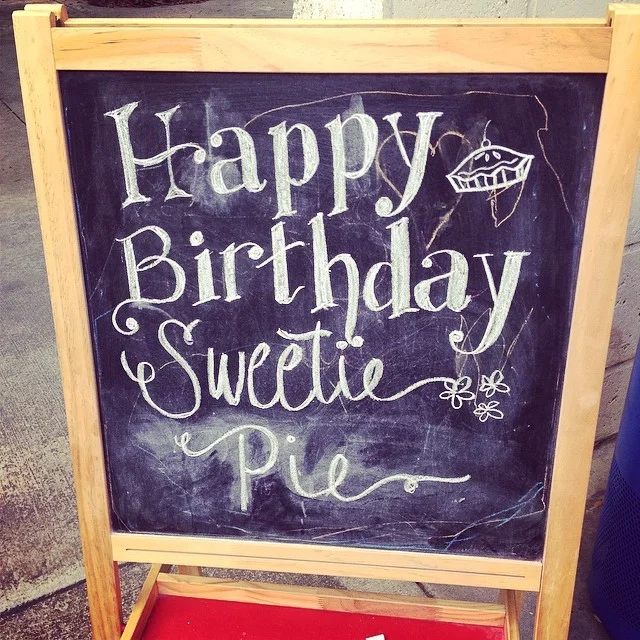 Happy
Birthday
Sweetie
Pie